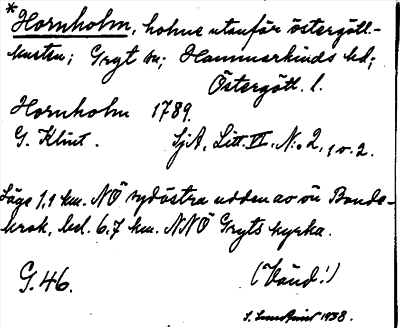 * Hornholm, holme utanför östergötl.-
kusten; Gryt sn; Hammarkinds hd;
Östergötl. l.
Hornholm 1789.
G. Klint. SjA, Litt. VI, N:o 2, 1 o. 2.
Läge 1,1 km. NÖ sydöstra udden av ön Bonde-
krok, bel. 6.7 km. NNÖ Gryts kyrka.
G. 46. (Vänd!)
1938.